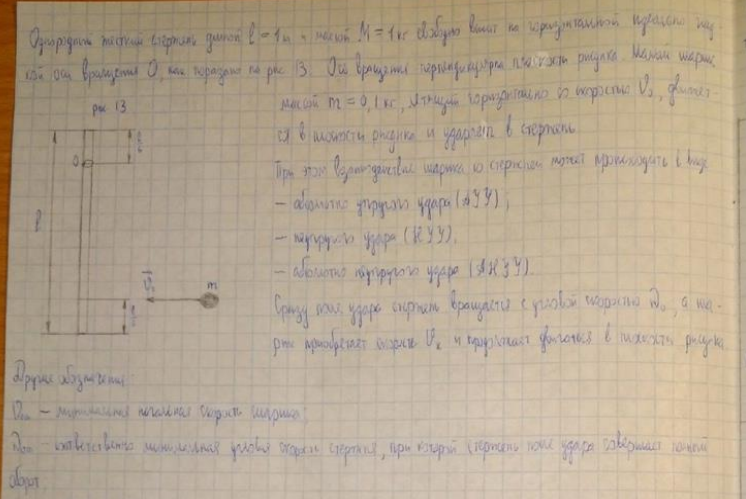 Однородный жесткий стержень длиной l = 1 м и массой M = 1 кг свободно висит на горизонтальной идеально глад-
кой оси вращения O, как показано на рис 13. Ось вращения перпендикулярна плоскости рисунка. Малый шарик
рис 13
массой m = 0,1 кг, летящий горизонтально со скоростью V₀, движет-
ся в плоскости рисунка и ударяет в стержень
При этом взаимодействие шарика со стержнем может происходить в виде
– абсолютно упругого удара (АУУ);
– неупругого удара (НУУ);
– абсолютно неупругого удара (АНУУ).
Сразу после удара стержень вращается с угловой скоростью ω₀, а ша-
рик приобретает скорость Vₖ и продолжает двигаться в плоскости рисунка
O
l
V₀
m
Другие обозначения:
– минимальная начальная скорость шарика;
– соответственно минимальная угловая скорость стержня, при которой стержень после удара совершает полный
оборот.